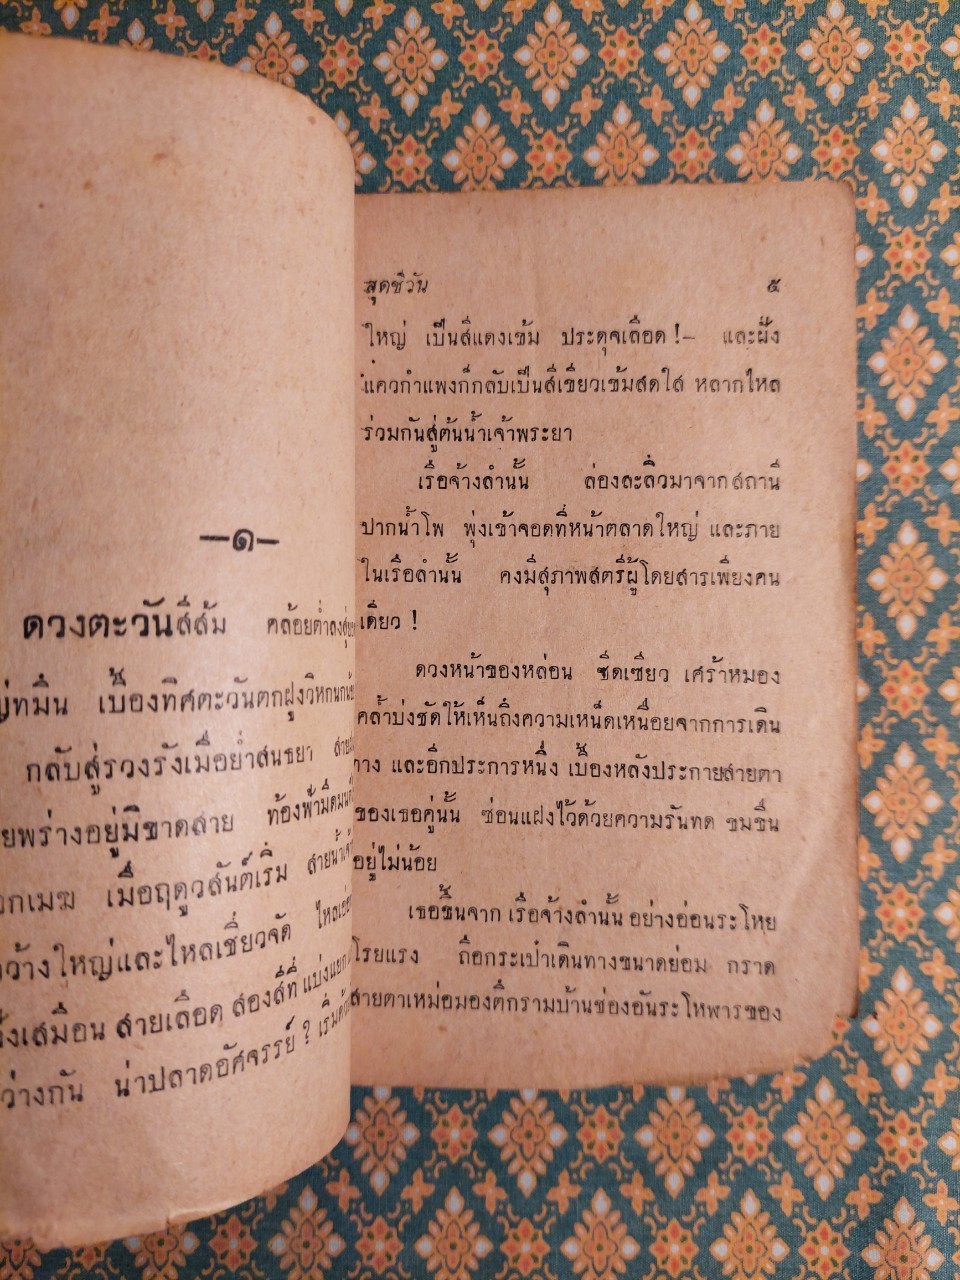 —๑—
ดวงตะวันสีส้ม คล้อยต่ำลงสู่
ทมึน เบื้องทิศตะวันตกฝูงวิหกนก
กลับสู่รวงรังเมื่อย่ำสนธยา
พร่างอยู่มิขาดสาย ท้องฟ้ามืดมน
เมฆ เมื่อฤดูวสันต์เริ่ม สายน้ำ
กว้างใหญ่และไหลเชี่ยวจัด
เสมือน สายเลือด สองสีที่ แบ่งแยก
ว่างกัน น่าปลาดอัศจรรย์ ?
สุดชีวัน ๕
ใหญ่ เป็นสีแดงเข้ม ประดุจเลือด !— และฝั่ง
แควกำแพงก็กลับเป็นสีเขียวเข้มสดใส หลากไหล
ร่วมกันสู่ต้นน้ำเจ้าพระยา
เรือจ้างลำนั้น ล่องละลิ่วมาจากสถานี
ปากน้ำโพ พุ่งเข้าจอดที่หน้าตลาดใหญ่ และภาย
ในเรือลำนั้น คงมีสุภาพสตรีผู้โดยสารเพียงคน
เดียว !
ดวงหน้าของหล่อน ซีดเซียว เศร้าหมอง
คล้ำบ่งชัดให้เห็นถึงความเหน็ดเหนื่อยจากการเดิน
ทาง และอีกประการหนึ่ง เบื้องหลังประกายสายตา
ของเธอคู่นั้น ซ่อนแฝงไว้ด้วยความรันทด ขมขื่น
อยู่ไม่น้อย
เธอขึ้นจาก เรือจ้างลำนั้น อย่างอ่อนระโหย
โรยแรง ถือกระเป๋าเดินทางขนาดย่อม กราด
สายตาเหม่อมองตึกรามบ้านช่องอันระโหฬารของ